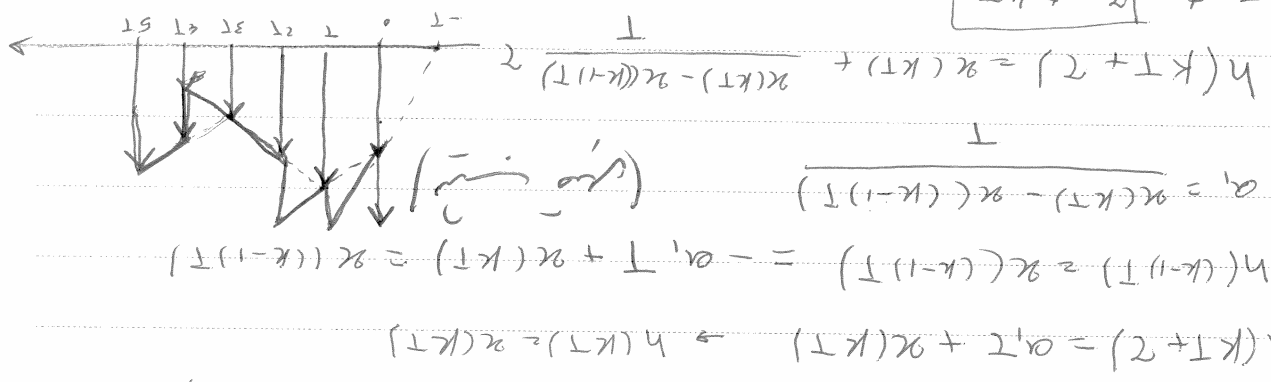 h(kT+τ) = a₁τ + x(kT) → h(kT) = x(kT)
h((k-1)T) = x((k-1)T) = -a₁T + x(kT) = x((k-1)T)
a₁ = \frac{x(kT) - x((k-1)T)}{T}
h(kT+τ) = x(kT) + \frac{x(kT) - x((k-1)T)}{T} τ
-T 0 T 2T 3T 4T 5T